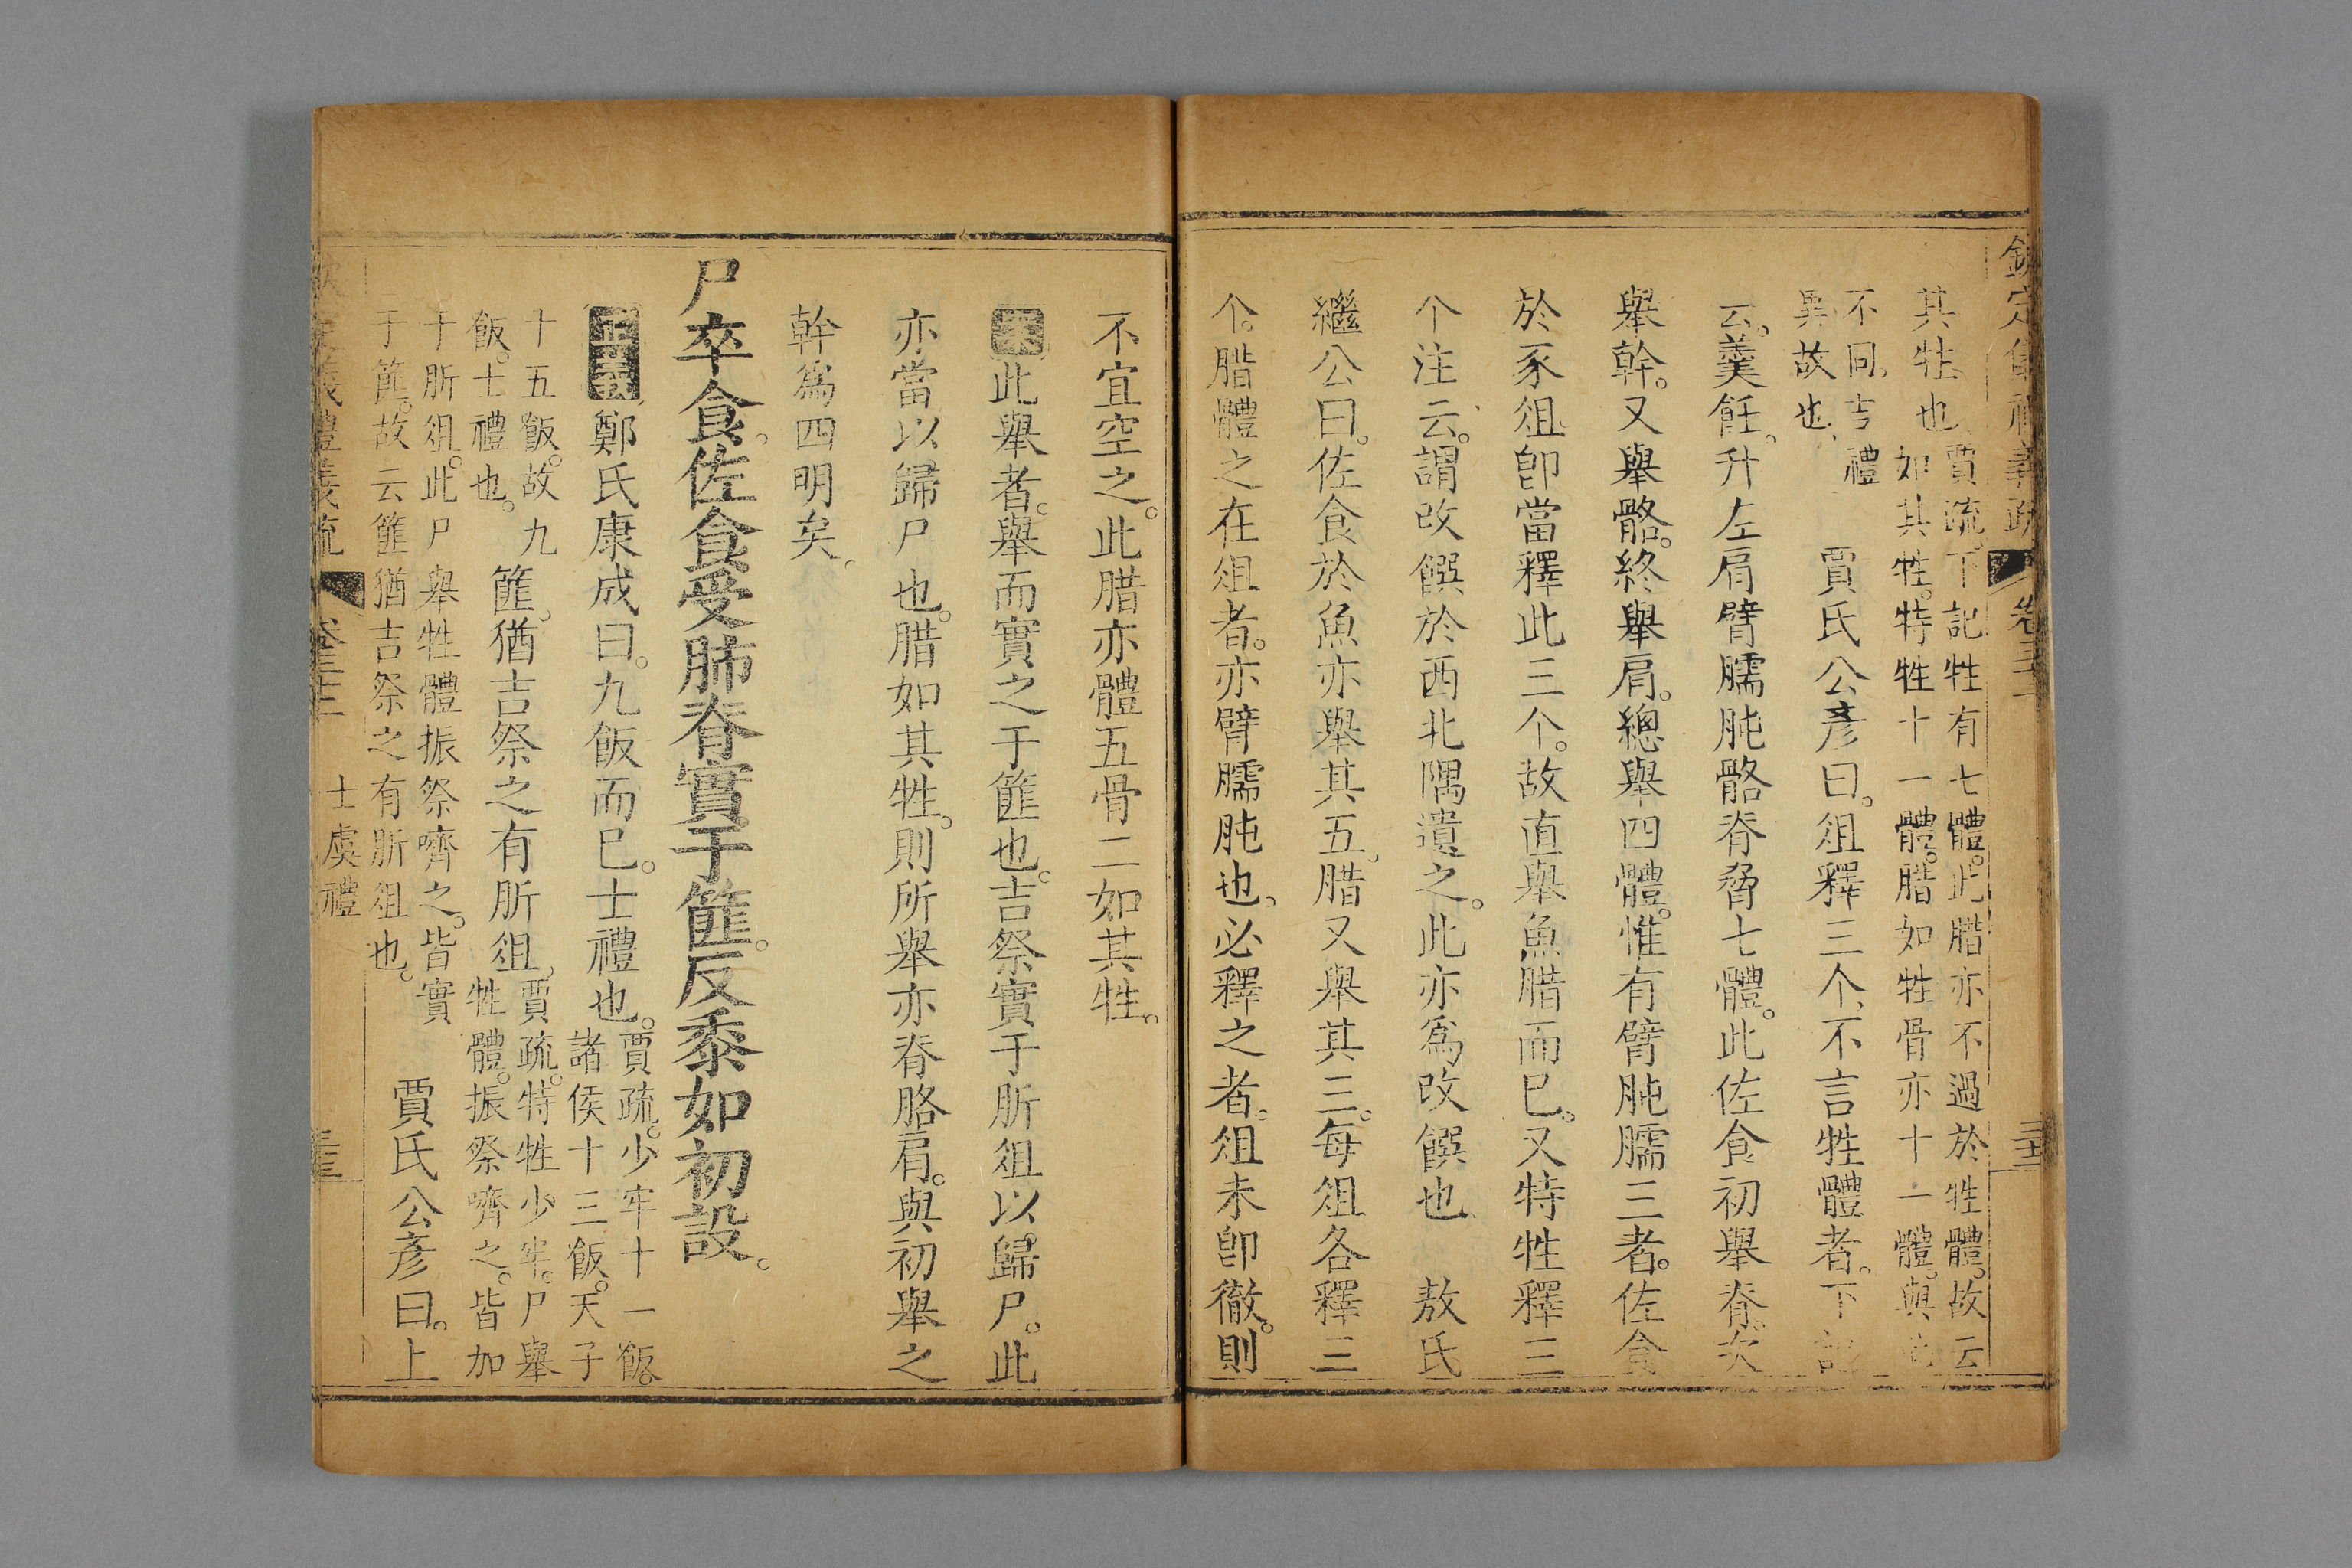 欽定儀禮義疏 卷三十三
其牲也 賈疏下記牲有七體。此腊亦不過於牲體。故云
如其牲。特牲十一體。腊如牲骨亦十一體。與
不同。吉禮
異故也 賈氏公彥曰。俎釋三个不言牲體者。下記
云。羹飪。升左肩臂臑肫骼脊脅七體。此佐食初舉脊。次
舉幹。又舉骼。終舉肩。總舉四體。惟有臂肫臑三者。佐食
於豕俎卽當釋此三个。故直舉魚腊而已。又特牲釋三
个注云。謂改饌於西北隅遺之。此亦爲改饌也 敖氏
繼公曰。佐食於魚亦舉其五。腊又舉其三。每俎各釋三
个。腊體之在俎者。亦臂臑肫也。必釋之者。俎未卽徹。則
不宜空之。此腊亦體五骨二如其牲。
案 此舉者。舉而實之于篚也。吉祭實于肵俎以歸尸。此
亦當以歸尸也。腊如其牲。則所舉亦脊胳肩。與初舉之
幹爲四明矣。
尸卒食。佐食受肺脊實于篚。反黍如初設。
正義 鄭氏康成曰。九飯而已。士禮也。 賈疏。少牢十一飯。
諸侯十三飯。天子
十五飯。故九
飯。士禮也。 篚。猶吉祭之有肵俎。 賈疏。特牲少牢。尸舉
牲體。振祭嚌之。皆加
于肵俎。此尸舉牲體振祭嚌之。皆實
于篚。故云篚猶吉祭之有肵俎也。 賈氏公彥曰。上
士虞禮